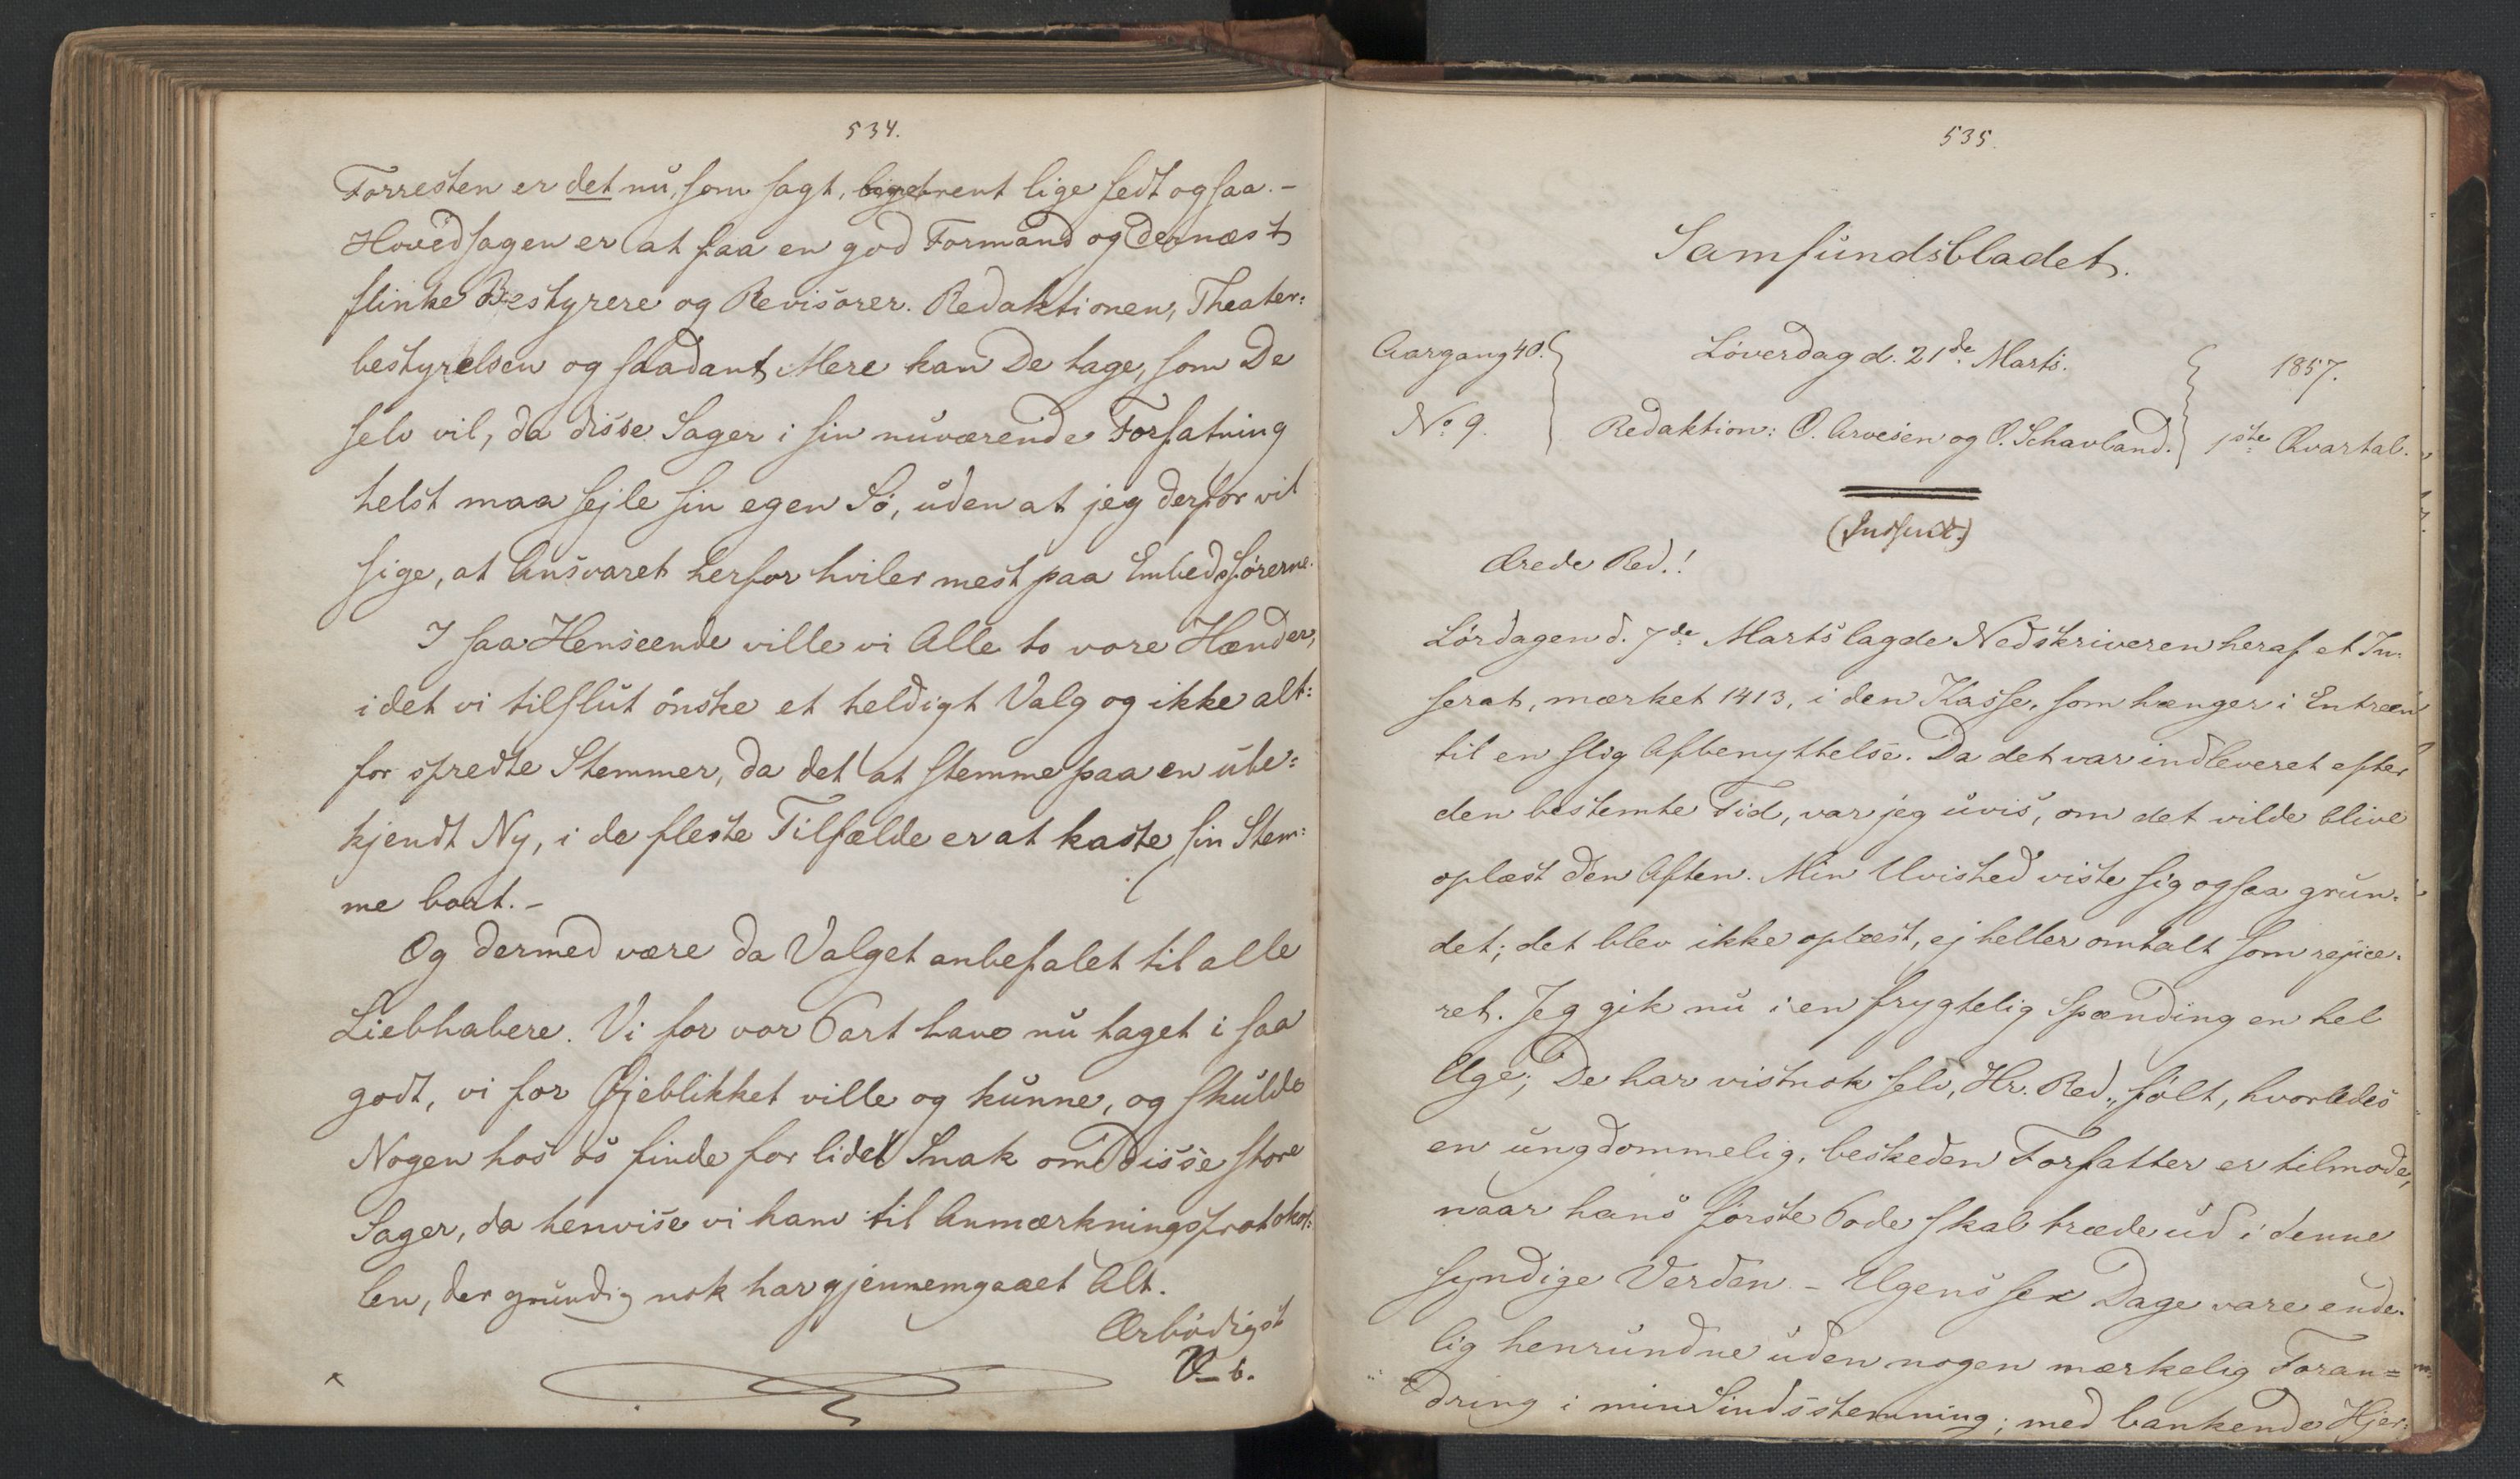 534.
Forresten er det nu, som sagt, rent lige fedt ogsaa. -
Hovedsagen er at faa en god Formand og dernæst
flinke Bestyrere og Revisorer. Redaktionen, Theater:
bestyrelsen og saadant Mere kan De tage, som De
selv vil, da disse Sager i sin nuværende Forfatning
helst maa sejle sin egen Sö, uden at jeg derfor vil
sige, at Ansvaret herfor hviler mest paa Embedsförerne.
I saa Henseende ville vi Alle to vore Hænder,
idet vi tilslut önske et heldigt Valg og ikke alt:
for spredte Stemmer, da det at stemme paa en ube:
kjendt Ny, i de fleste Tilfælde er at kaste sin Stem:
me bort. -
Og dermed være da Valget anbefalet til alle
Liebhabere. Vi for vor Part have nu taget i saa
godt, vi for Öjeblikket ville og kunne, og skulde
Nogen hos os finde for lidet Snak om disse store
Sager, da henvise vi ham til Anmærkningsprotokol:
len, der grundig nok har gjennemgaaet Alt.
Ærbödigst
V-b.
535.
Samfundsbladet.
Aargang 40. Löverdag d. 21de Marts. 1857.
No 9. Redaktion: O. Arvesen og O. Schavland. 1ste Qvartal.
(Indsendt.)
Ærede Red.!
Lördagen d. 7de Marts lagde Nedskriveren heraf et In:
serat, mærket 1413, i den Kasse, som hænger i Entreen
til en slig Afbenyttelse. Da det var indleveret efter
den bestemte Tid, var jeg uvis, om det vilde blive
oplæst den Aften. Min Uvished viste sig ogsaa grun:
det; det blev ikke oplæst, ej heller omtalt som rejice:
ret. Jeg gik nu i en frygtelig Spænding en hel
Uge; De har vistnok selv, Hr. Red., fölt, hvorledes
en ungdommelig, beskeden Forfatter er tilmode,
naar hans förste Pode skal træde ud i denne
syndige Verden. - Ugens sex Dage vare ende:
lig henrundne uden nogen mærkelig Foran=
dring i min Sindsstemning; med bankende Hjer: